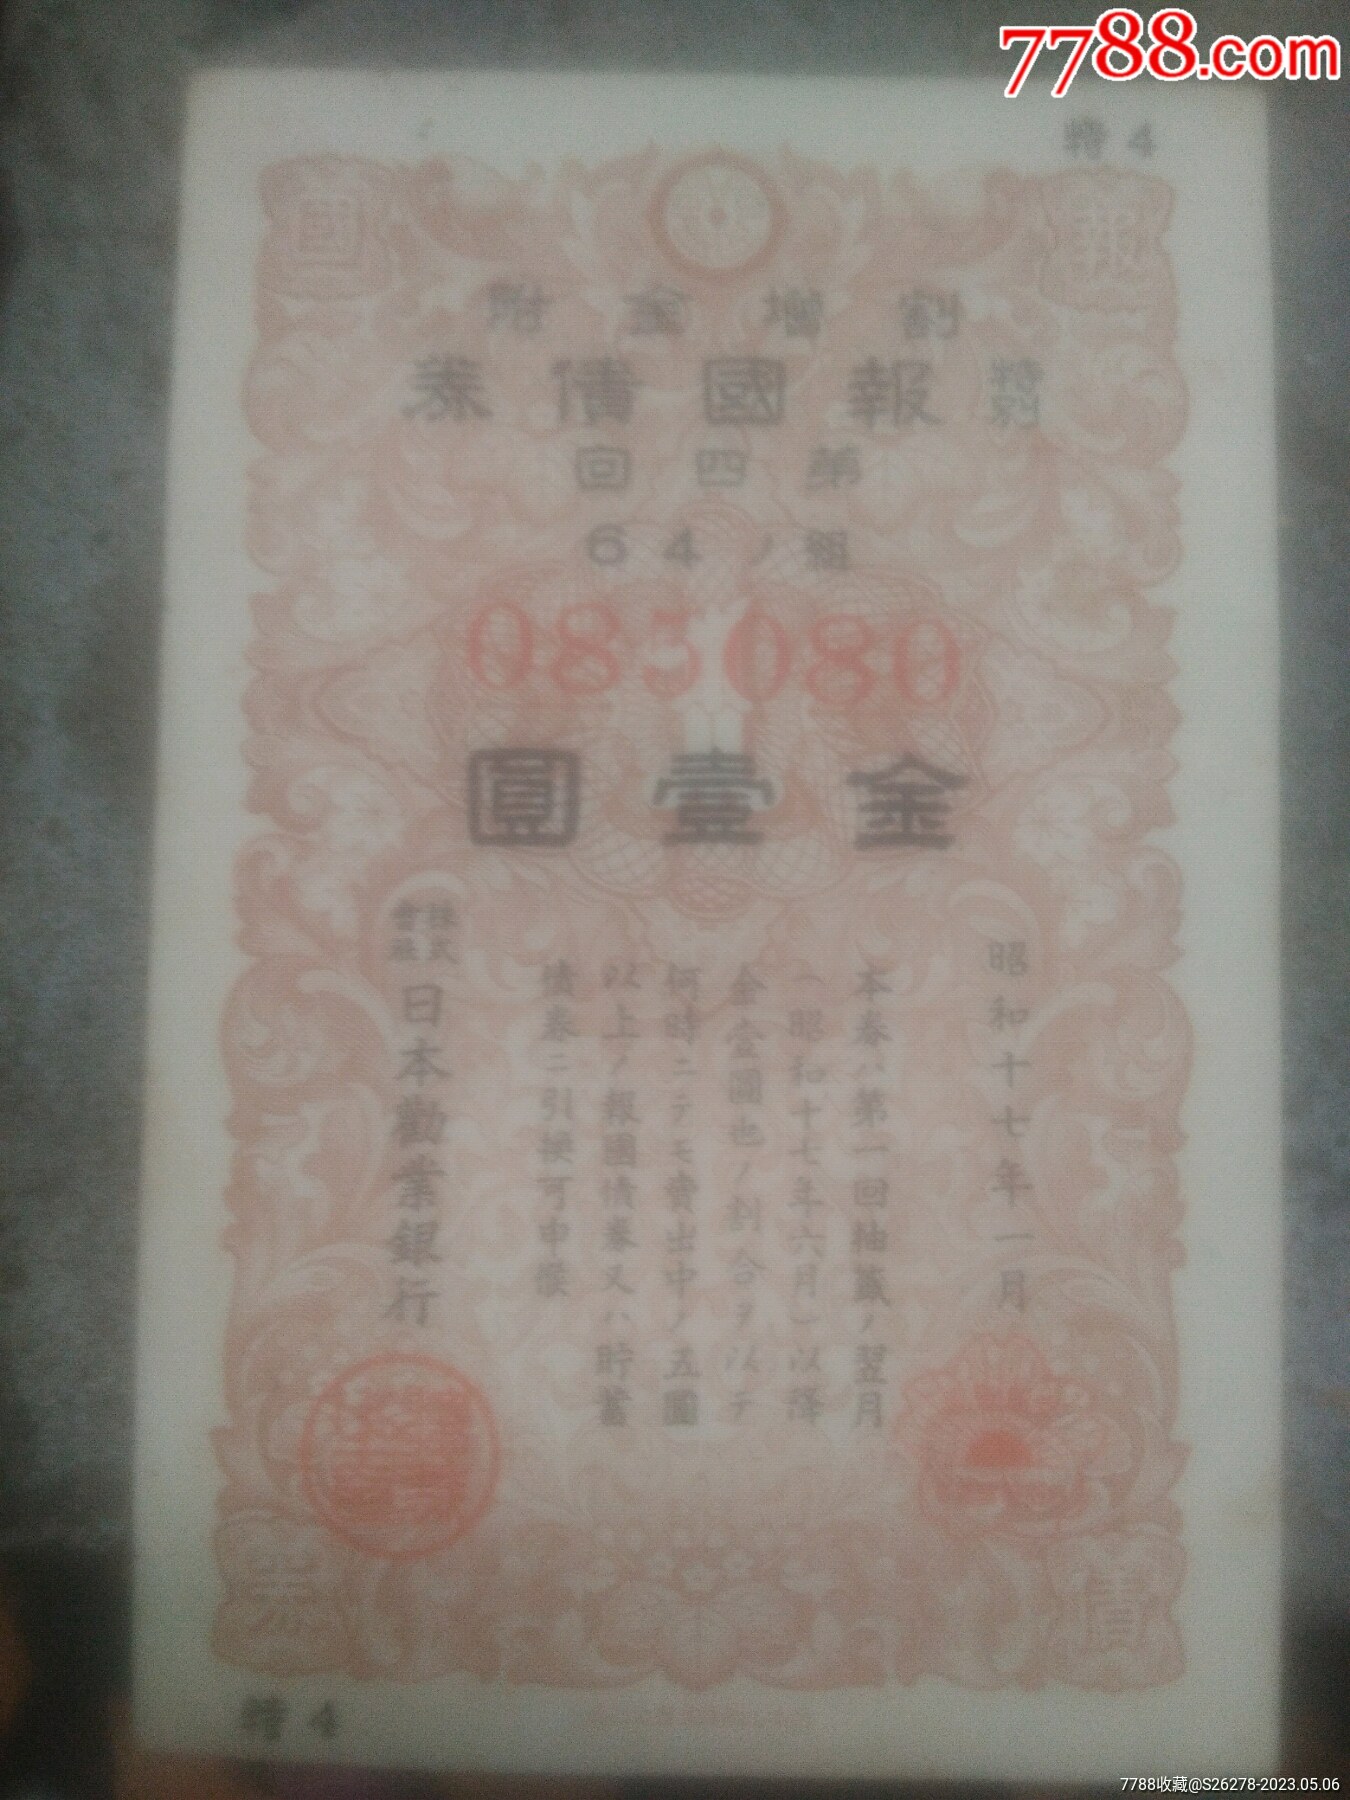 7788.com
特4
報國
割増金附
特別報國債券
第四回
組ノ64
085080
金壹圓
昭和十七年一月
本券ハ第一回抽籤ノ翌月
(昭和十七年六月)以降
金壹圓也ノ割合ヲ以テ
何時ニテモ賣出中ノ五圓
以上ノ報國債券又ハ貯蓄
債券ニ引換可申候
株式會社日本勸業銀行
債券
特4
7788收藏@S26278-2023.05.06